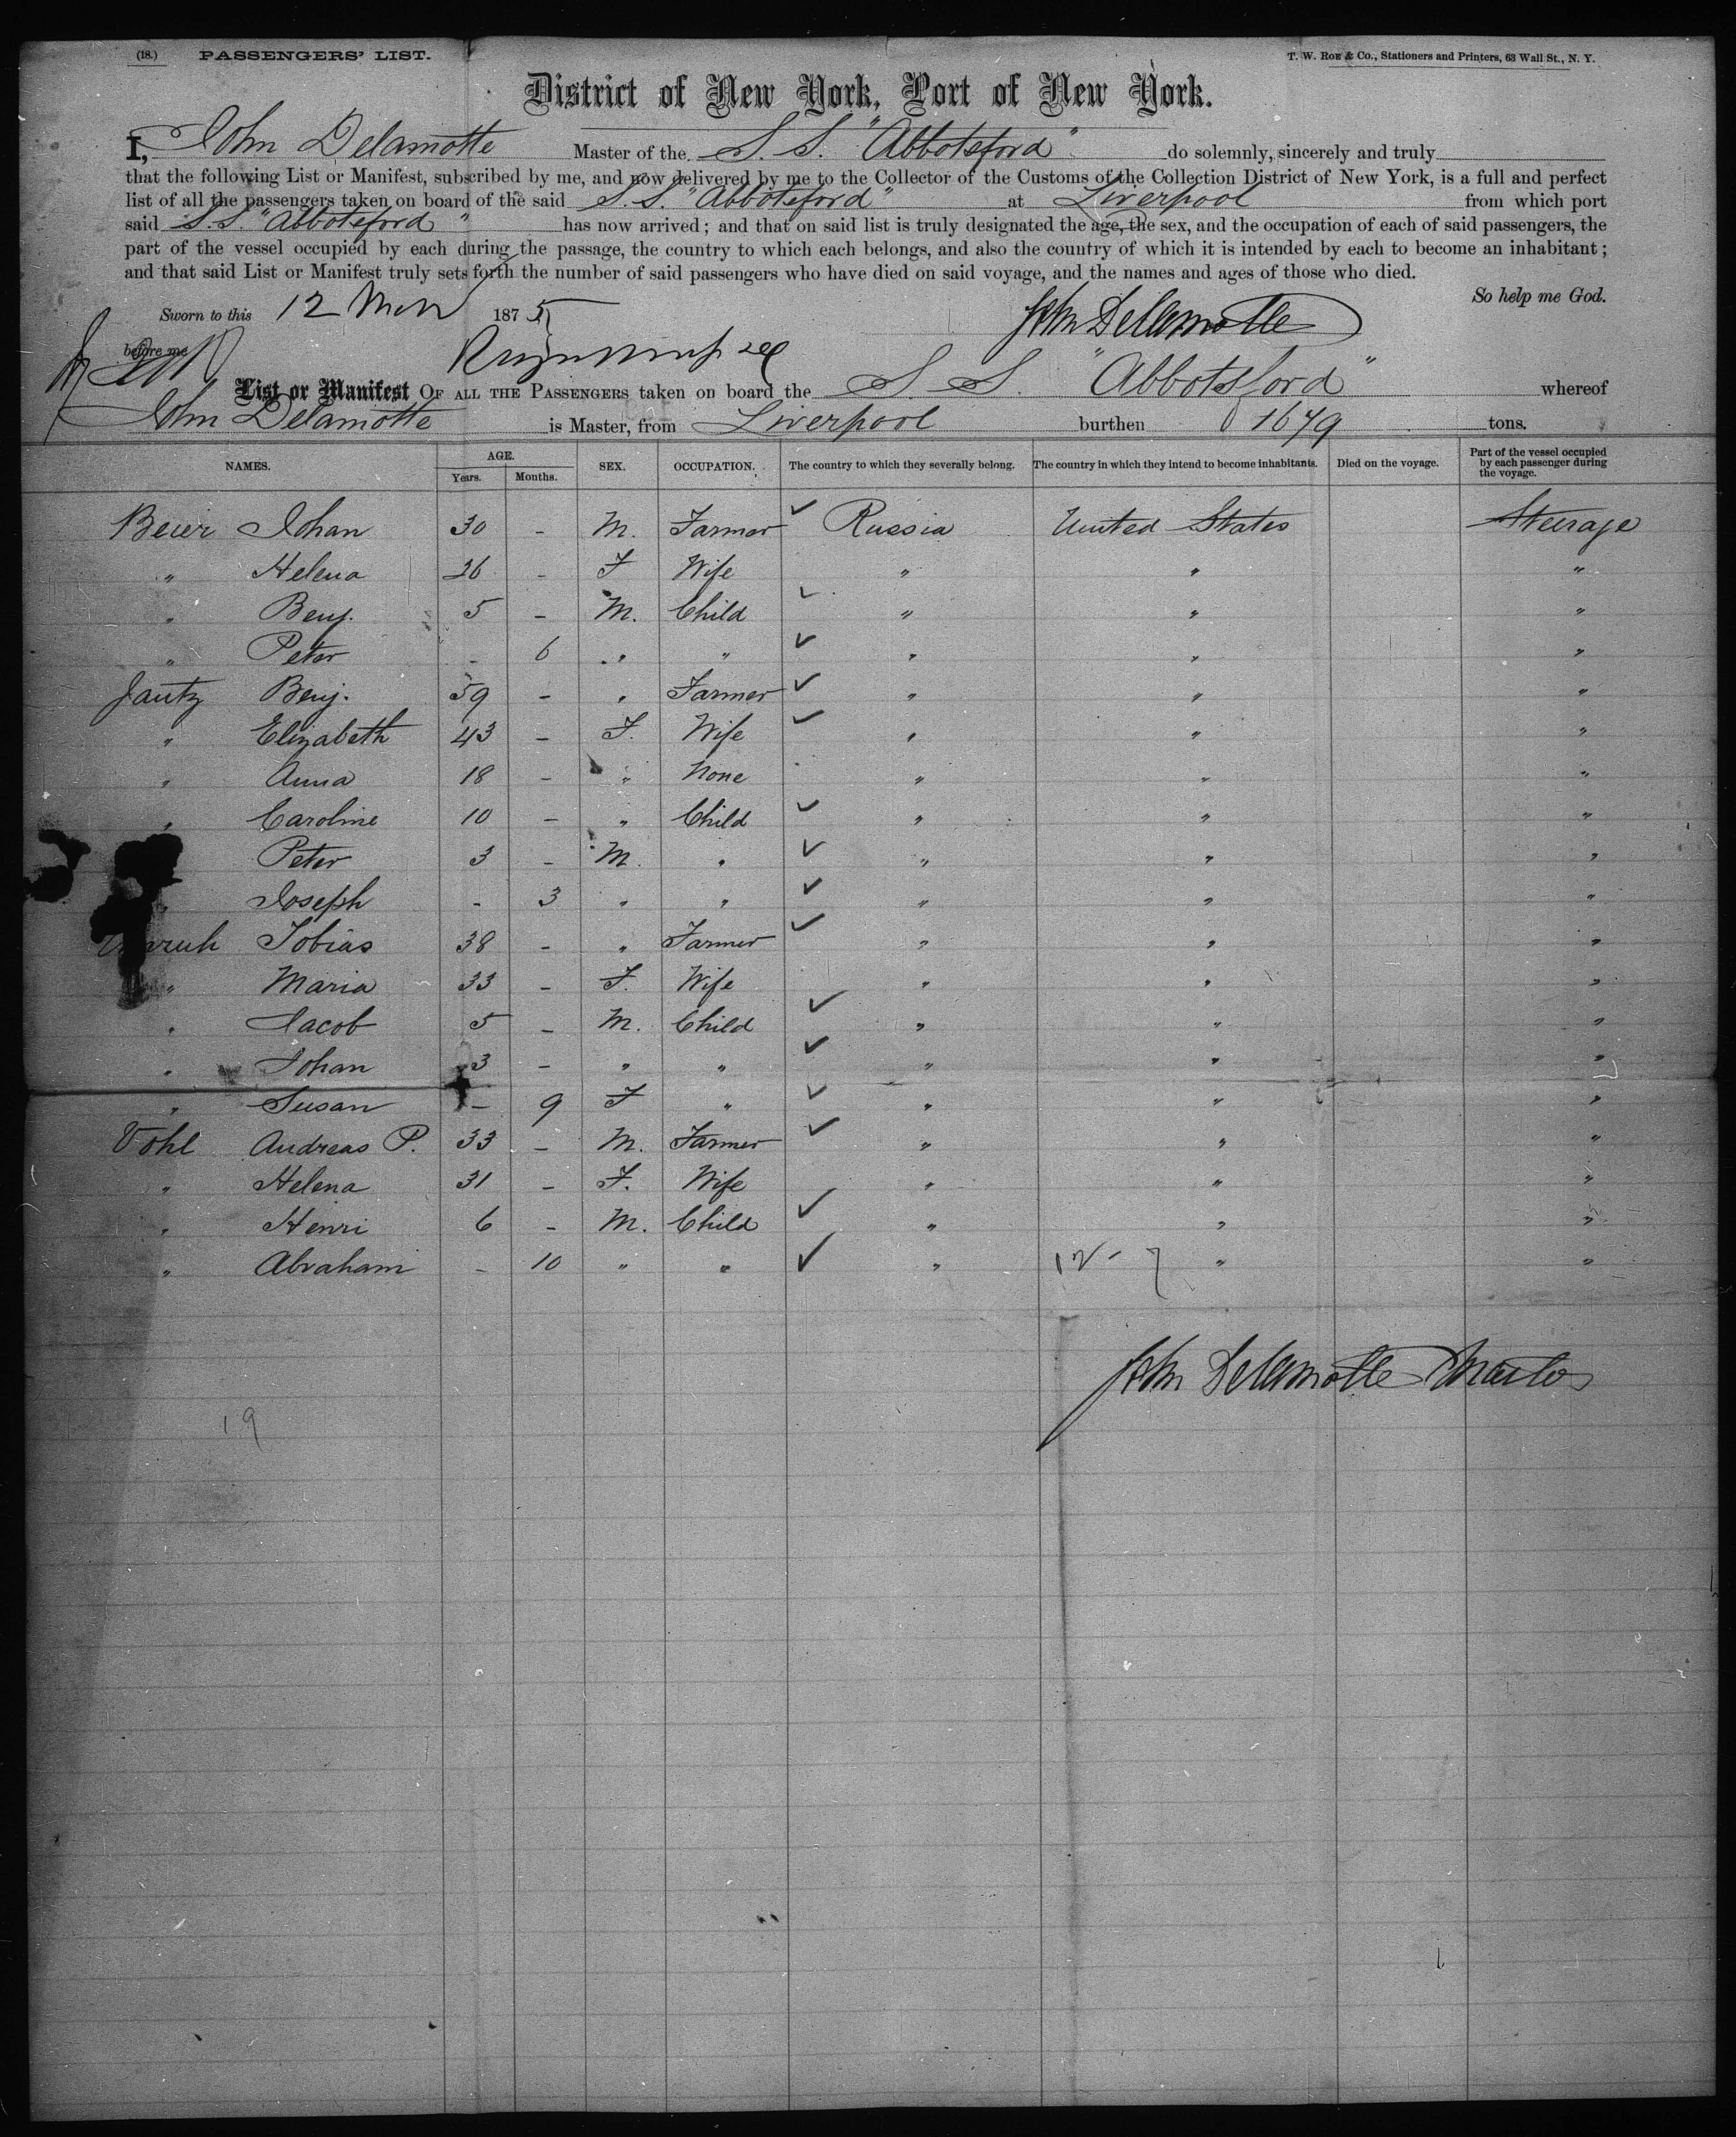 (18.) PASSENGERS' LIST. T. W. ROE & Co., Stationers and Printers, 63 Wall St., N. Y.
District of New York, Port of New York.
I, John Delamotte Master of the S. S. "Abbotsford" do solemnly, sincerely and truly
that the following List or Manifest, subscribed by me, and now delivered by me to the Collector of the Customs of the Collection District of New York, is a full and perfect
list of all the passengers taken on board of the said S. S. "Abbotsford" at Liverpool from which port
said S. S. "Abbotsford" has now arrived; and that on said list is truly designated the age, the sex, and the occupation of each of said passengers, the
part of the vessel occupied by each during the passage, the country to which each belongs, and also the country of which it is intended by each to become an inhabitant;
and that said List or Manifest truly sets forth the number of said passengers who have died on said voyage, and the names and ages of those who died.
So help me God.
Sworn to this 12 1875 John Delamotte
before me
List or Manifest OF ALL THE PASSENGERS taken on board the S. S. "Abbotsford" whereof
John Delamotte is Master, from Liverpool burthen 1679 tons.
NAMES. AGE. Years. Months. SEX. OCCUPATION. The country to which they severally belong. The country in which they intend to become inhabitants. Died on the voyage. Part of the vessel occupied by each passenger during the voyage.
Beier Johan 30 - M. Farmer ✓ Russia United States Steerage
" Helena - F Wife " " "
" Benj. 5 - M. Child ✓ " " "
" Peter - 6 " " ✓ " " "
Jantz Benj. 59 - " Farmer ✓ " " "
" Elizabeth 43 - F. Wife ✓ " " "
" Anna 18 - " None " " "
" Caroline 10 - " Child ✓ " " "
Peter 3 - M. " ✓ " " "
" Joseph - 3 " " ✓ " " "
Unruh Tobias 38 - " Farmer ✓ " " "
" Maria 33 - F. Wife " " "
" Jacob 5 - M. Child ✓ " " "
" Johan 3 - " " ✓ " " "
" Susan - 9 F " ✓ " " "
Vohl Andreas P. 33 - M. Farmer ✓ " " "
" Helena 31 - F. Wife " " "
" Henri 6 - M. Child ✓ " " "
" Abraham - 10 " " ✓ " 12 - 7 " "
John Delamotte Master
19